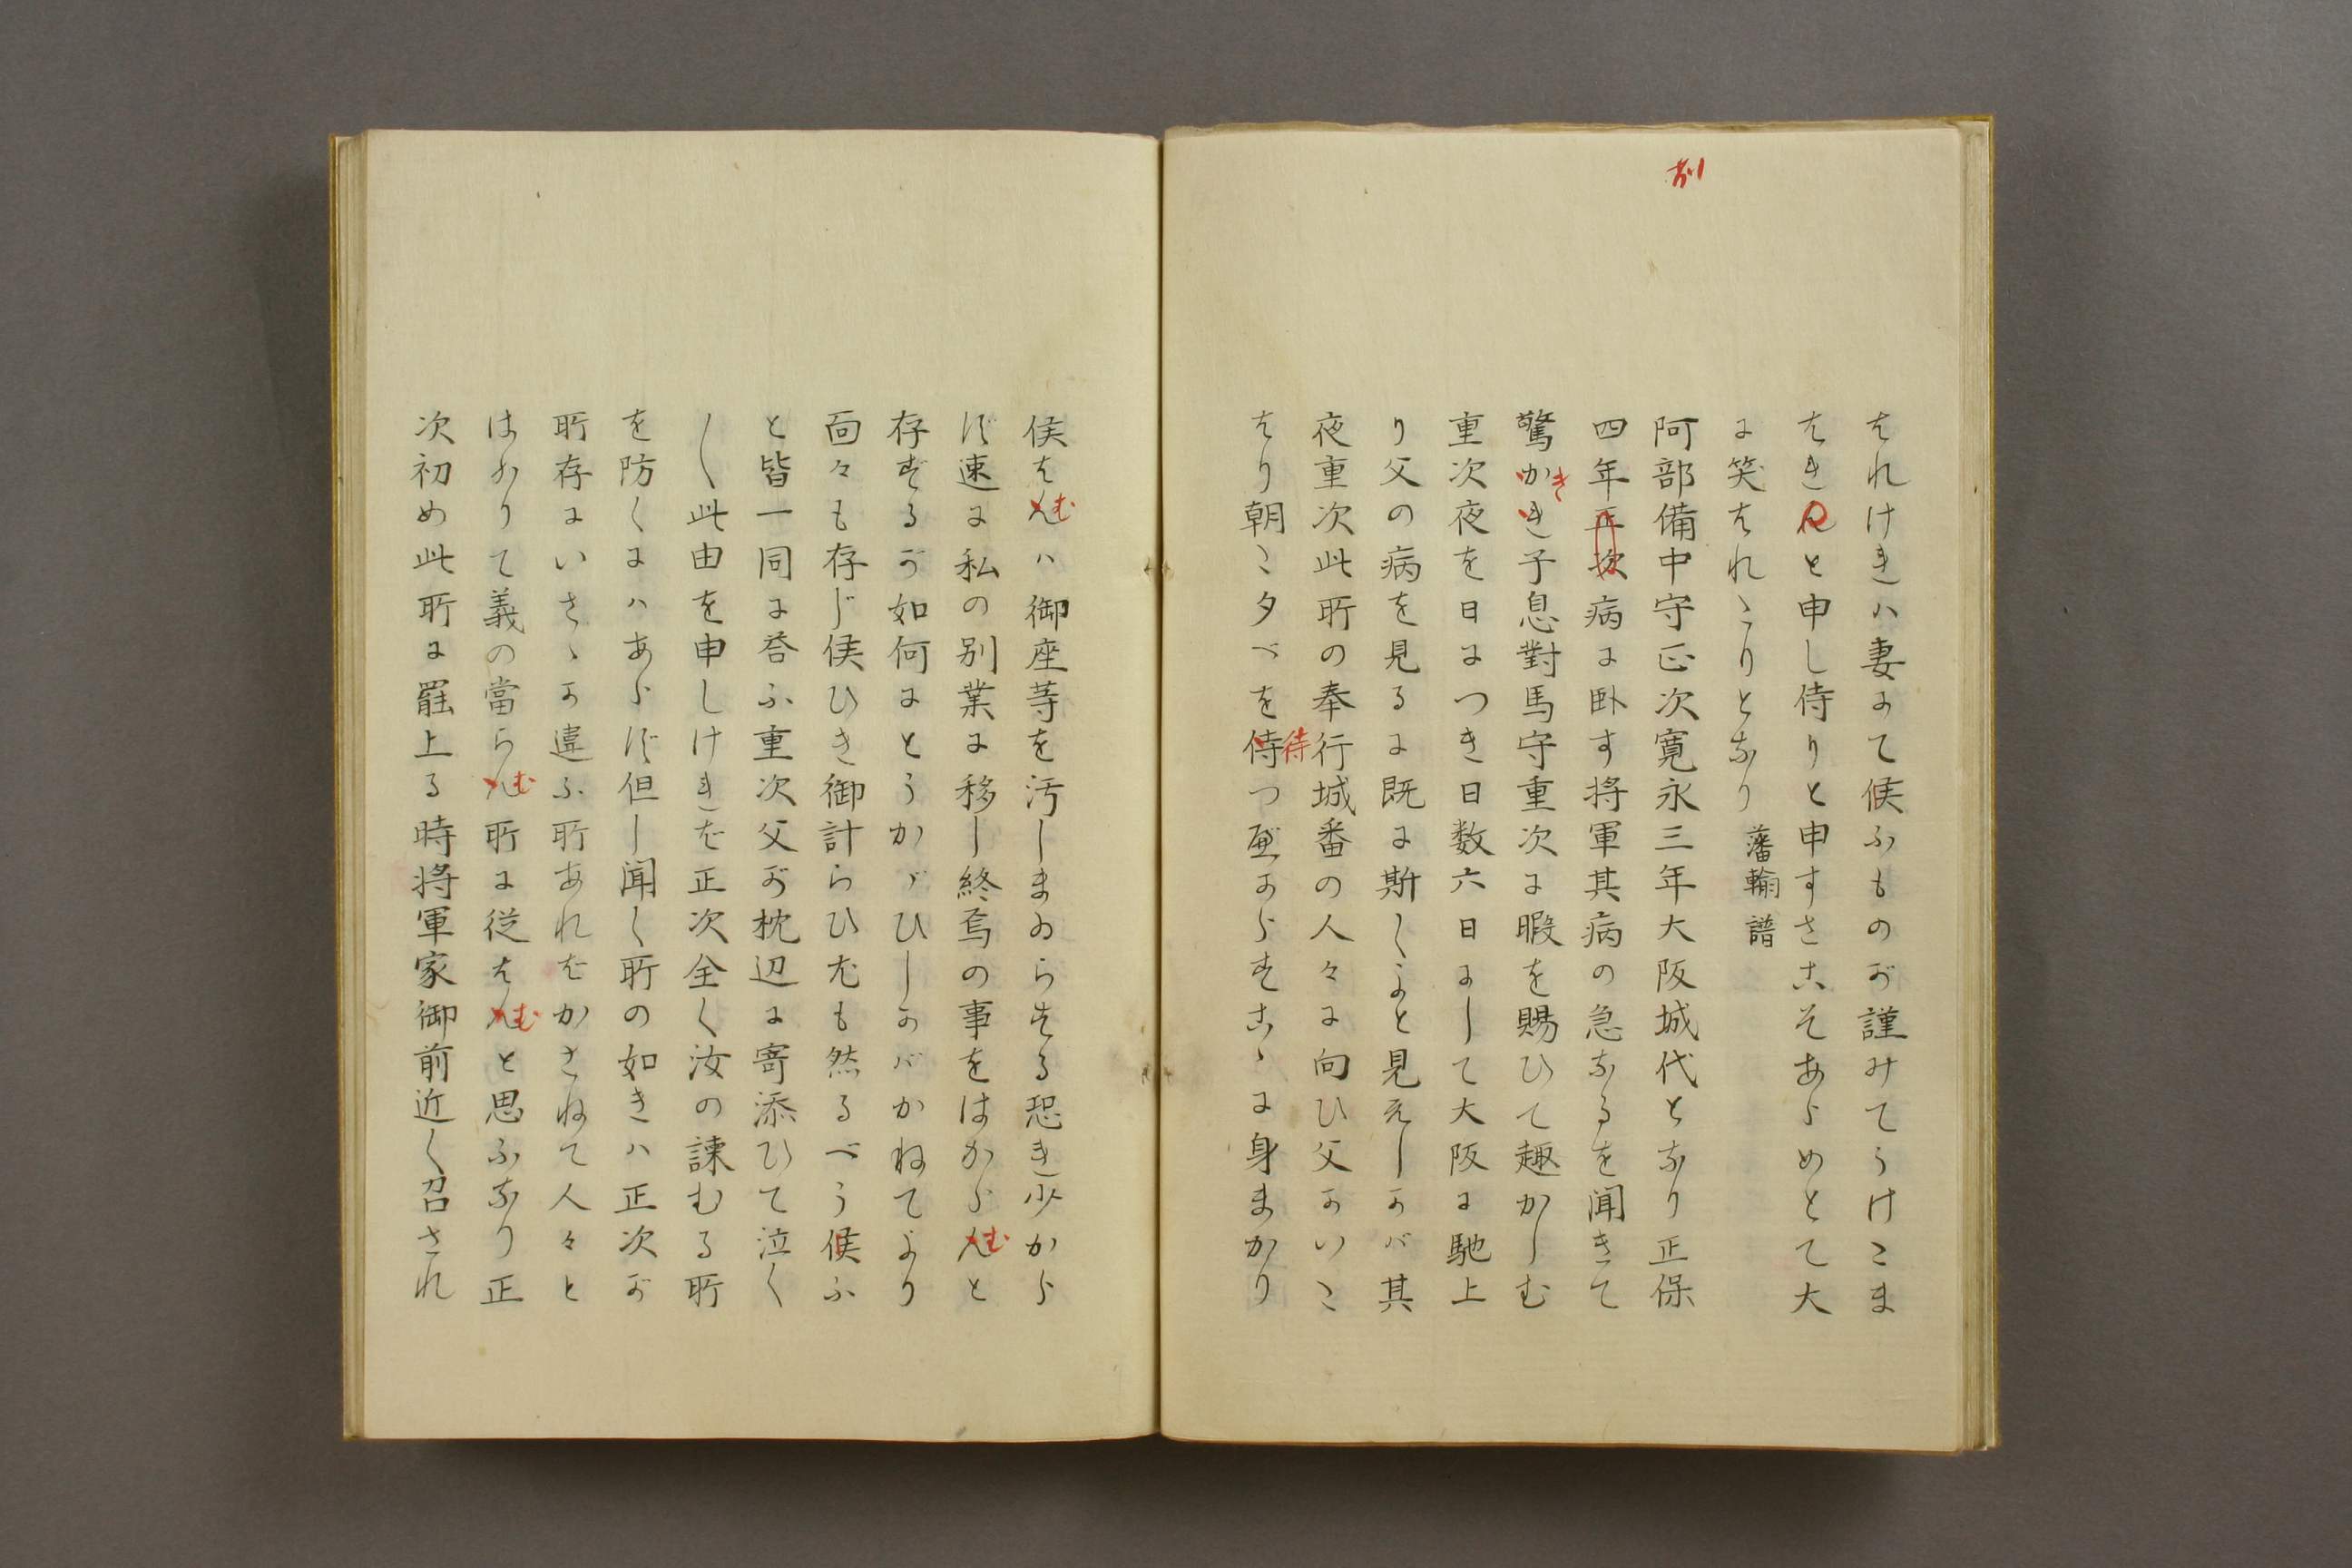 別
をれけきハ妻にて候ふものが謹みてうけこま
をきんと申し侍りと申すさこそあらめとて大
に笑をれたりとなり 藩輪譜
阿部備中守正次寛永三年大阪城代となり正保
四年正次病に卧す将軍其病の急なるを聞きて
驚かき子息對馬守重次に暇を賜ひて趣かしむ
き
重次夜を日につき日数六日にして大阪に馳上
り父の病を見るに既に斯くよと見えしかバ其
夜重次此所の奉行城番の人々に向ひ父かいこ
をり朝こ夕べを侍つ可あらずこゝに身まかり
待
候をんハ御座等を汚しまゐらする恐き少から
む
ず速に私の別業に移し終焉の事をはからんと
む
存ずるが如何にとうかゞひしかバかねてより
面々も存じ候ひき御計らひ尤も然るべう候ふ
と皆一同に答ふ重次父が枕辺に寄添ひて泣く
〱此由を申しけきば正次全く汝の諌むる所
を防くにハあらず但し聞く所の如きハ正次が
所存にいさゝか違ふ所あれどかさねて人々と
はかりて義の當らん所に従をんと思ふなり正
む
む
次初め此所に罷上る時将軍家御前近く召され